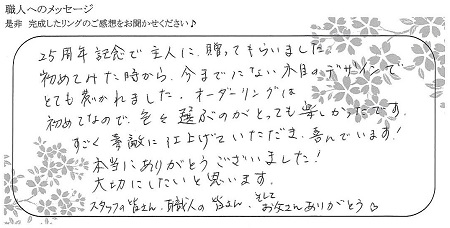 職人へのメッセージ
是非 完成したリングのご感想をお聞かせください♪
25周年記念で主人に贈ってもらいました。
初めてみた時から、今までにない木目のデザインで
とても惹かれました。オーダーリングは
初めてなので、色を選ぶのがとっても楽しかったです。
すごく素敵に仕上げていただき、喜んでいます!
本当にありがとうございました!
大切にしたいと思います。
スタッフの皆さん、職人の皆さん、そして お父さんありがとう